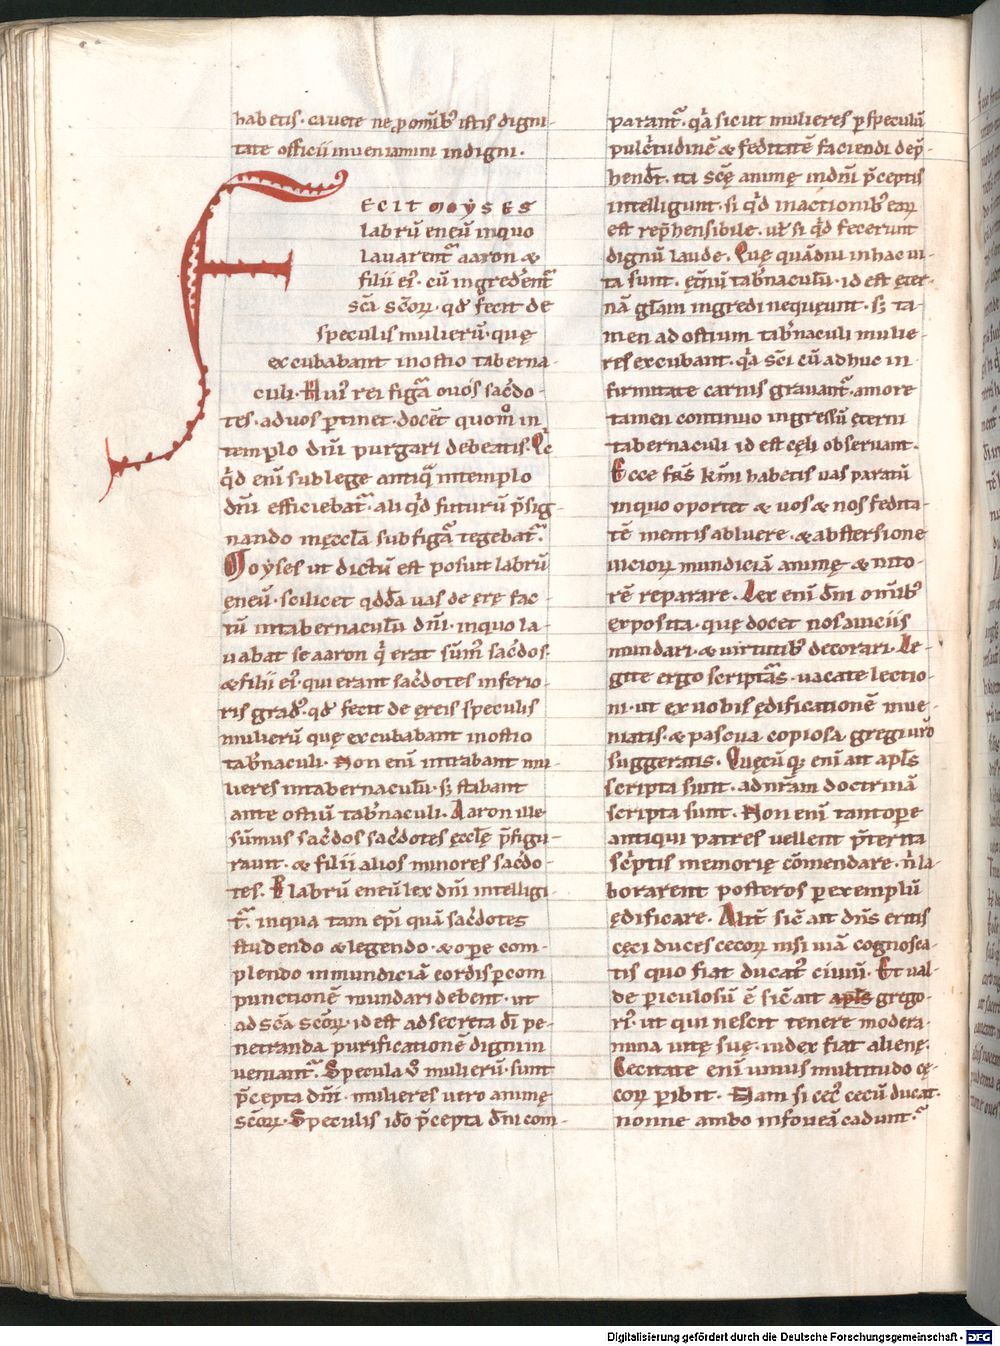 habetis. cavete ne ꝓ omĩbꝰ istis digni-
tate officii inveniamini indigni.
FECIT MOYSES
labrũ eneũ in quo
lavarentᷓ aaron &
filii eiꝰ. cũ ingredẽntᷓ
sc̃a sc̃oꝝ. qd̃ fecit de
speculis mulierũ. quę
excubabant in ostio taberna-
culi. Huiꝰ rei figᷓa ővos sac̃do-
tes. ad vos ꝑtinet. docẽt quom̊ in
templo dñi purgari debeatis. Qc̃
qͥd enĩ sub lege antiqͣ in templo
dñi efficiebatᷓ. ali qͥd futurũ p̃sig-
nando męccl̃a sub figᷓa tegebatᷓ.
Moyses ut dictũ est posuit labrũ
ęneũ. scilicet qdd̃a vas de ęrę fac-
tũ in tabernaculũ dñi. in quo la-
vabat se aaron qͥ erat sũmꝰ sac̃dos.
& filii eiꝰ. qui erant sac̃dotes inferio-
ris gradꝰ. qd̃ fecit de ęreis speculis
mulierũ quę excubabant in ostio
tab̃naculi. Non enĩ intrabant mu-
lieres in tabernaculũ. sꝫ stabant
ante ostiũ tab̃naculi. Aaron ille
sũmus sac̃dos sac̃dotes ęccl̃ę p̃figu-
ravit. & filii alios minores sac̃do-
tes. P labrũ eneũ lex dñi intelligi-
tᷓ. in qua tam ep̃i quã sac̃dotes
studendo & legendo. & oꝑe com-
plendo inmundiciã cordis ꝑ com
punctionẽ mundari debent. ut
ad sc̃a sc̃oꝝ. id est ad secreta dĩ pe-
netranda purificationẽ digni in
veniantᷓ. Specula v̊ mulierũ. sunt
p̃cepta dñi. mulieres vero animę
sc̃oꝝ. Speculis id̊o p̃cepta dñi com-
parantᷓ. qͥa sicut mulieres ꝑ speculũ
pulc̃tudinẽ & feditatẽ faciendi dep̃-
hendr̃t. ita sc̃ę animę in dñi p̃ceptis
intelligunt. si qͥd in actionibꝰ eaꝝ
est rep̃hensibile. vl̃ si qͥd fecerunt
dignũ laude. Quę quãdiu in hac vi-
ta sunt. ęt̃nũ tab̃naculũ. id est ęter-
nã gl̃am ingredi nequeunt. sꝫ ta-
men ad ostium tab̃naculi mulie-
res excubant. qͥa sc̃i cũ adhuc in-
firmitate carnis gravantᷓ. amore
tamen continuo ingressũ ęterni
tabernaculi id est cęli observant.
Ecce fr̃s km̃i habetis vas paratũ
in quo oportet & vos & nos fedita-
tẽ mentis abluere. & abstersione
vicioꝝ mundiciã animę & nito-
rẽ reparare. Lex enĩ dñi omĩbꝰ
exposita. quę docet nos a viciis
mundari. & virtutibꝰ decorari. Le-
gite ergo scripturᷓas. vacate lectio-
ni. ut ex vobis ędificationẽ inve-
niatis. & pascua copiosa gregi vr̃o
suggeratis. Quęcũqꝫ enĩ ait apl̃s
scripta sunt. ad nr̃am doctrinã
scripta sunt. Non enĩ tantoꝑe
antiqui patres vellent p̃terita
sc̃ptis memorię cõmendare. ñ la-
borarent posteros ꝑ exemplũ
ędificare. Alit̃ sic̃ ait dñs eritis
cęci duces cecoꝝ nisi viã cognosca-
tis quo fiat ducatꝰ civiũ. Et val-
de ꝑiculosũ ẽ sic̃ ait apl̃s grego-
riꝰ. ut qui nescit tenere modera-
mina vitę suę. iudex fiat alienę.
Cecitate enĩ unius multitudo cę-
coꝝ ꝑibit. Nam si cecꝰ cecũ ducat.
nonne ambo in foveã cadunt.ᷓ
Digitalisierung gefördert durch die Deutsche Forschungsgemeinschaft - DFG